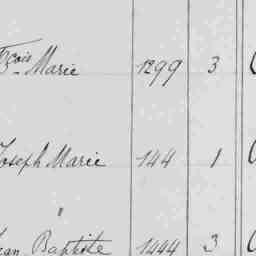 Fçois Marie 1299 3
Joseph Marie 144 1
"
Jean Baptiste 1444 3